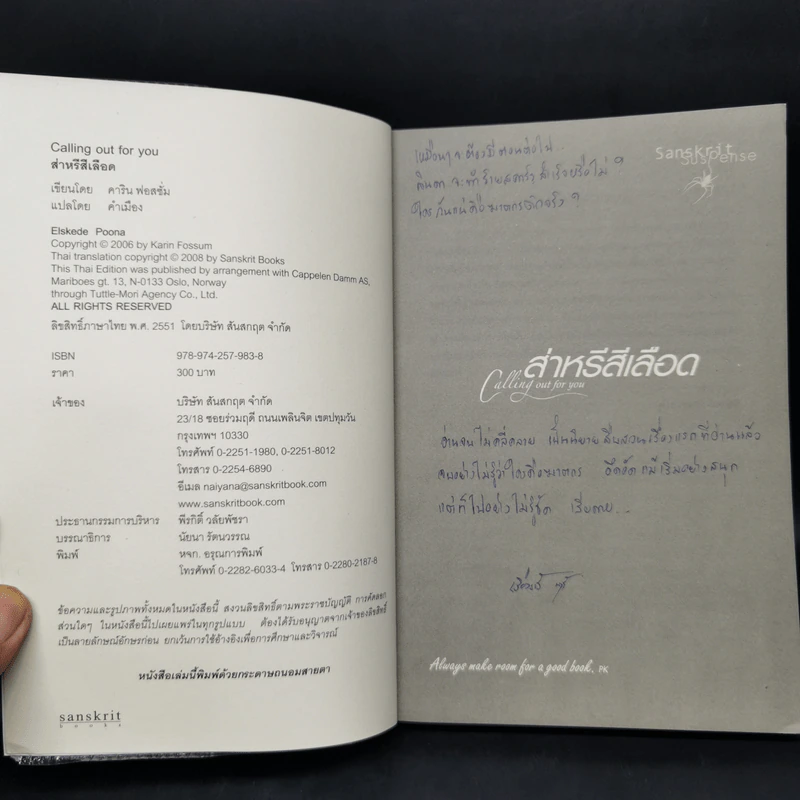 Calling out for you
ส่าหรีสีเลือด
เขียนโดย คาริน ฟอสซั่ม
แปลโดย คำเมือง
Elskede Poona
Copyright © 2006 by Karin Fossum
Thai translation copyright © 2008 by Sanskrit Books
This Thai Edition was published by arrangement with Cappelen Damm AS,
Mariboes gt. 13, N-0133 Oslo, Norway
through Tuttle-Mori Agency Co., Ltd.
ALL RIGHTS RESERVED
ลิขสิทธิ์ภาษาไทย พ.ศ. 2551 โดยบริษัท สันสกฤต จำกัด
ISBN 978-974-257-983-8
ราคา 300 บาท
เจ้าของ บริษัท สันสกฤต จำกัด
23/18 ซอยร่วมฤดี ถนนเพลินจิต เขตปทุมวัน
กรุงเทพฯ 10330
โทรศัพท์ 0-2251-1980, 0-2251-8012
โทรสาร 0-2254-6890
อีเมล naiyana@sanskritbook.com
www.sanskritbook.com
ประธานกรรมการบริหาร พีรกิติ์ วลัยพัชรา
บรรณาธิการ นัยนา รัตนวรรณ
พิมพ์ หจก. อรุณการพิมพ์
โทรศัพท์ 0-2282-6033-4 โทรสาร 0-2280-2187-8
ข้อความและรูปภาพทั้งหมดในหนังสือนี้ สงวนลิขสิทธิ์ตามพระราชบัญญัติ การคัดลอก
ส่วนใดๆ ในหนังสือนี้ไปเผยแพร่ในทุกรูปแบบ ต้องได้รับอนุญาตจากเจ้าของลิขสิทธิ์
เป็นลายลักษณ์อักษรก่อน ยกเว้นการใช้อ้างอิงเพื่อการศึกษาและวิจารณ์
หนังสือเล่มนี้พิมพ์ด้วยกระดาษถนอมสายตา
sanskrit
books
เหมือนจะต้องมีตอนต่อไป..
สำเร็จหรือไม่ ?
ใครกันแน่คือฆาตกรตัวจริง ?
Sanskrit
suspense
ส่าหรีสีเลือด
Calling out for you
อ่านจนไม่คลี่คลาย เป็นนิยายสืบสวนเรื่องแรกที่อ่านแล้ว
จบอย่างไม่รู้ว่าใครคือฆาตกร อึดอัด เริ่มอย่างสนุก
แต่ก็ไปอย่างไม่รู้ชัด เสียดาย...
Always make room for a good book. PK